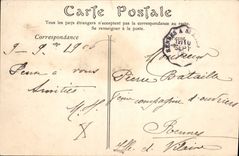 Carte Postale
Tous les pays étrangers n'acceptent pas la correspondance au recto.
Se renseigner à la poste.
Correspondance
9-9bre 1906
Pense à vous
Amitiés
Monsieur
Pierre Bataille
compagnie d'ouvriers
Rennes
Ille & Vilaine